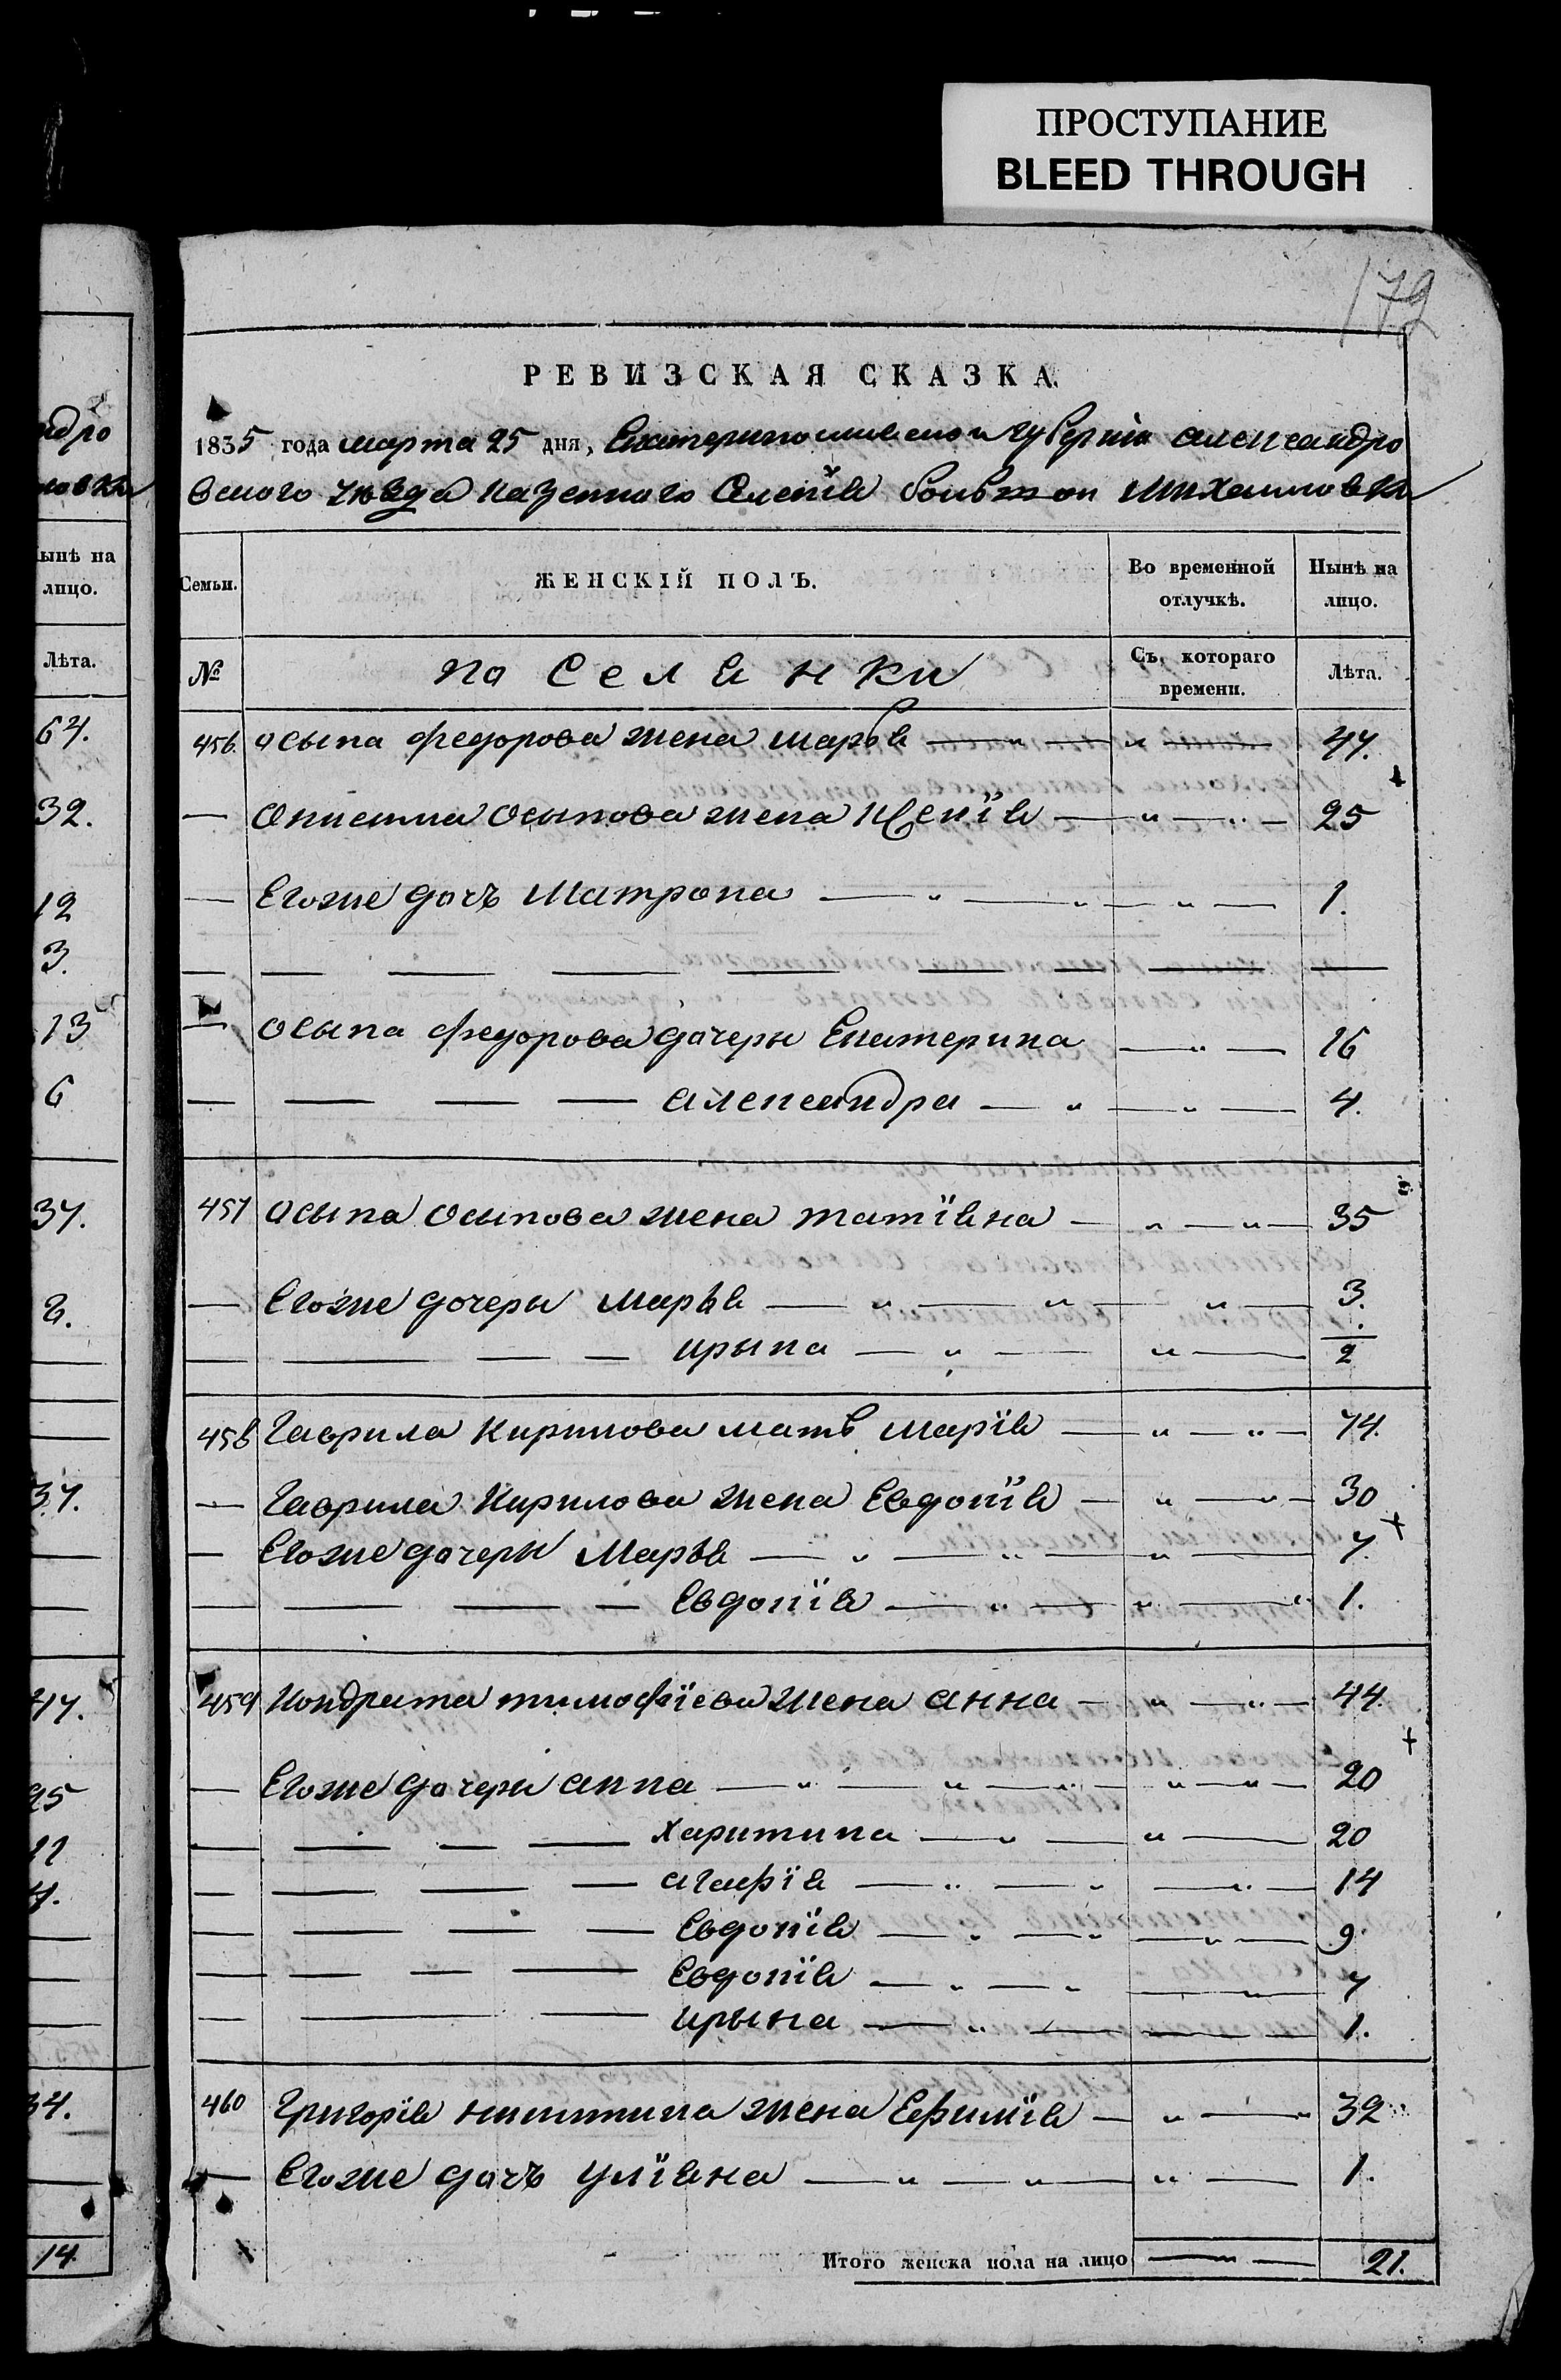 ПРОСТУПАНИЕ
BLEED THROUGH
172
РЕВИЗСКАЯ СКАЗКА.
1835 года марта 25 дня, Екатеринославской губернии александро
вского уѣзда казенного Селенія большой Михаиловки
Семьи.
ЖЕНСКІЙ ПОЛЪ.
Во временной отлучкѣ.
Нынѣ на лицо.
№
поселянки
Съ котораго времени.
Лѣта.
456. осыпа федорова жена марья — " — " — 47.
— Анисима Осыпова жена Ксенія — " — " — 25
— Егоже дочъ Матрона — " — " — " — 1.
— осыпа федорова дочери Екатерина — " — 16
— — — — александра — " — " — 4.
457 осыпа осыпова жена татіяна — " — " — 35
— Егоже дочери марья — " — " — " — 3.
— — — — ирына — " — " — 2
458 гаврила Кирилова мать марія — " — " — 74.
— гаврила Кирилова жена Евдокія — " — " — 30
— Егоже дочери Марья — " — " — " — 7.
— — — — Евдокія — " — " — " 1.
459 Кондрата тимофіева жена анна — " — " — 44.
— Егоже дочери анна — " — " — " — " — " — 20
— — — — харитина — " — " — 20
— — — — агафія — " — " — " — 14
— — — — Евдокія — " — " — " — 9.
— — — — Евдокія — " — " — " — 7
— — — — ирына — " — — — 1.
460 григорія никитина жена Ефимія — " — " 32
— Егоже дочъ уліяна — " — " — " — 1.
Итого женска пола на лицо — — 21.
ндро
ловки
Нынѣ на
лицо.
Лѣта.
64.
32.
12
3.
13
6
37.
2.
37.
47.
25
11
4.
34.
14